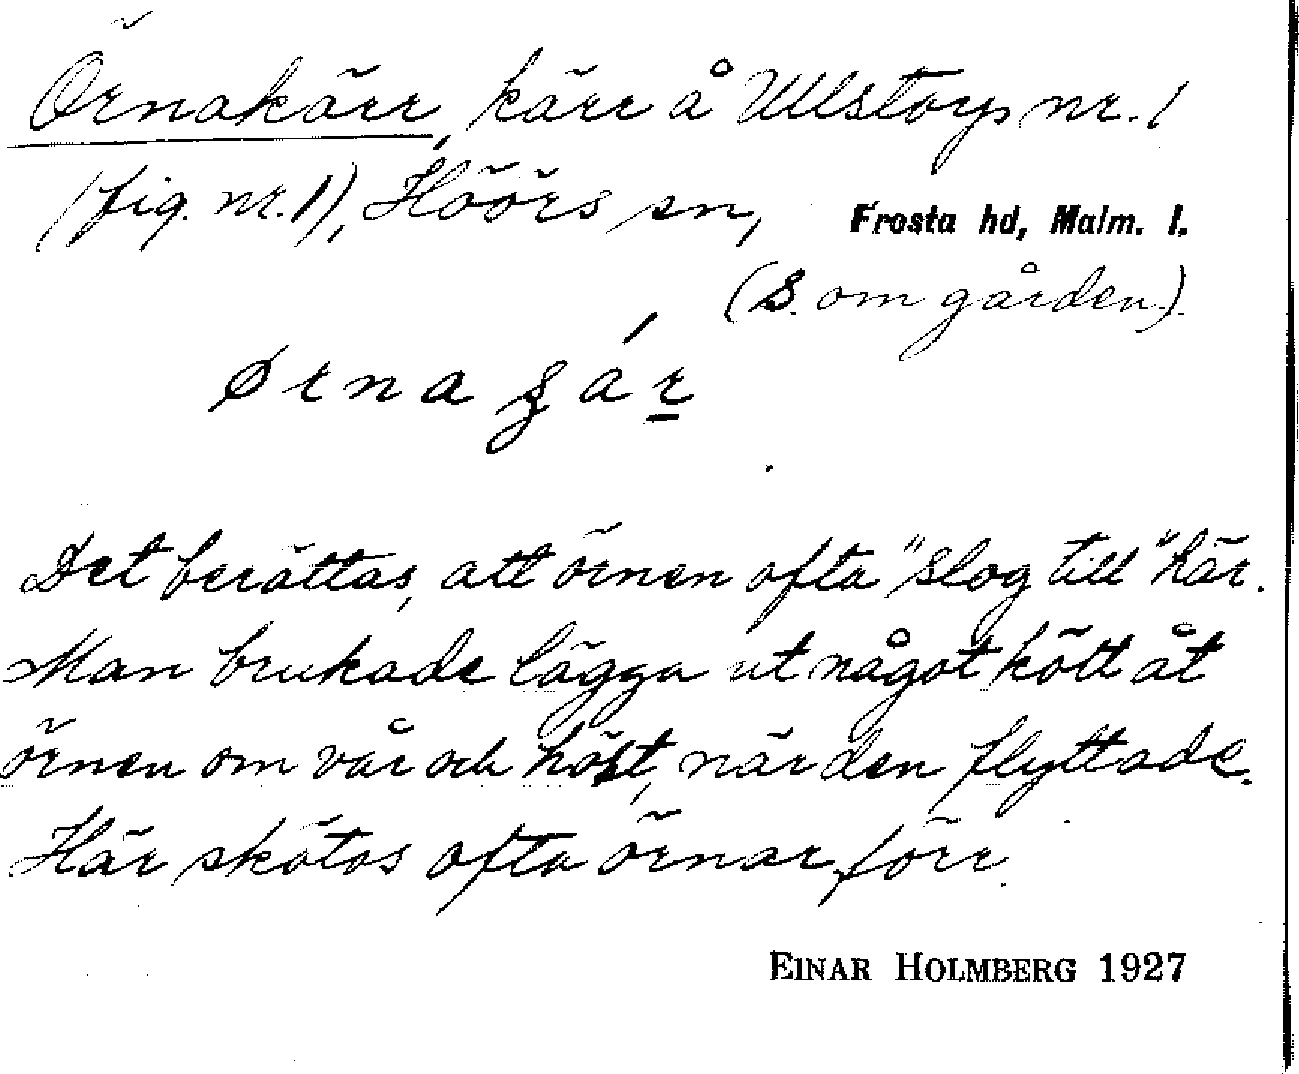 Örnakärr, kärr å Ullstorp nr. 1
(fig. nr. 1), Höörs sn, Frosta hd, Malm. l.
(S. om gården).
Det berättas, att örnen ofta "slog till" här.
Man brukade lägga ut något kött åt
örnen om vår och höst, när den flyttade.
Här skötos ofta örnar förr.
EINAR HOLMBERG 1927